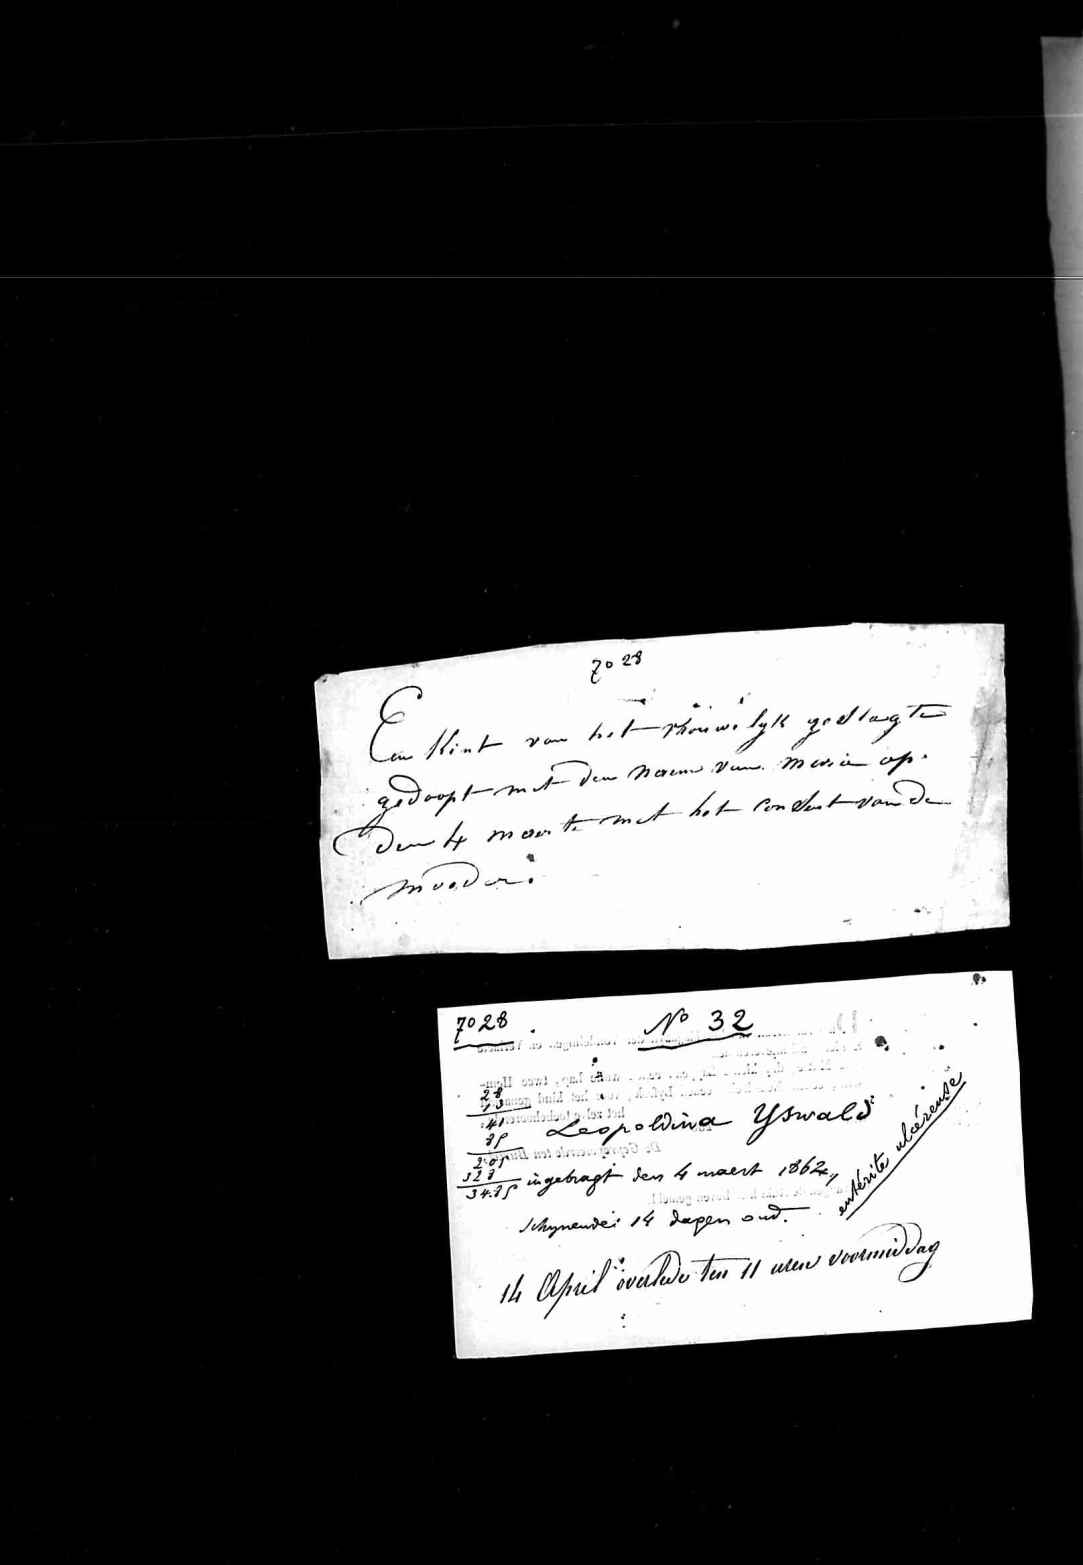 7028
Een Kint van het vrouwelyk geslagte
gedoopt met den naeme van maria op
den 4 maerte met het consent van de
moeder.
7028
N° 32
28
13
41
Leopoldina Yswald
205
328
34.85
ingebragt den 4 maert 1862,
schynende 14 dagen oud.
entérite ulcéreuse
14 April overlede ten 11 uren voormiddag